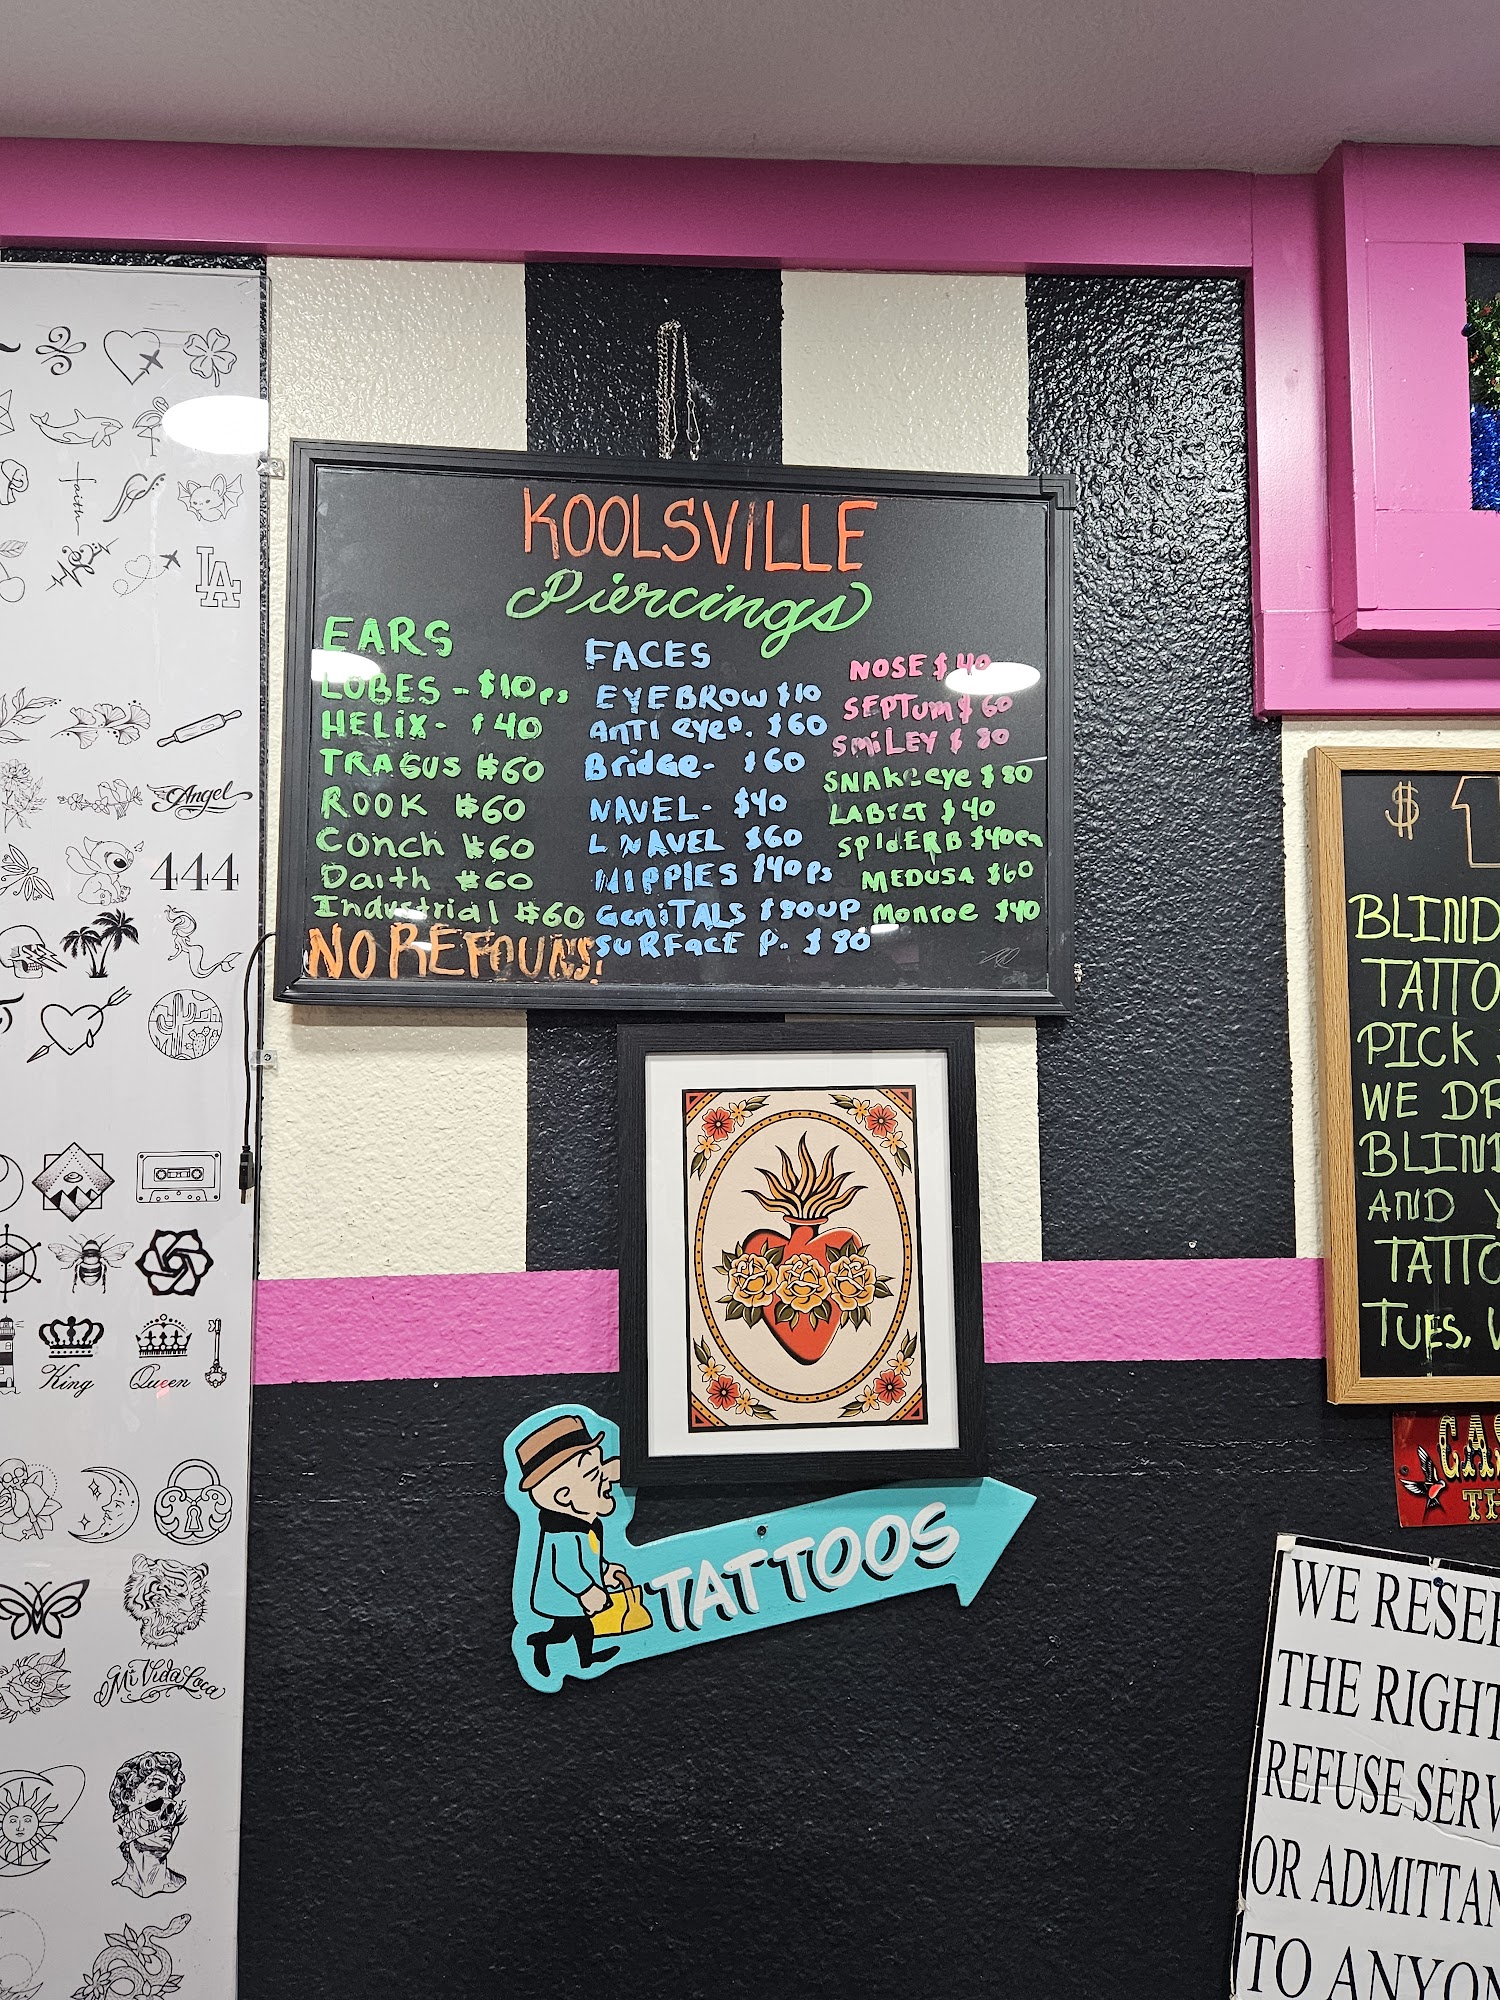 KOOLSVILLE
Piercings
EARS
LOBES - $10ps
HELIX- $40
TRAGUS $60
ROOK $60
Conch $60
Daith $60
Industrial $60
NO REFOUNS!
FACES
EYEBROW $10
ANTI eyeb. $60
Bridge- $60
NAVEL- $40
L NAVEL $60
NIPPIES $40ps
GENITALS $80UP
SURFACE P. $80
NOSE $40
SEPTUM $60
SMILEY $80
SNAKEeye $80
LABRET $40
SPIDERB $40ea
MEDUSA $60
Monroe $40
faith
LA
Angel
444
King
Queen
Mi Vida Loca
TATTOOS
$
BLIND
TATTO
PICK
WE DR
BLIND
AND Y
TATTO
TUES.
CAS
TH
WE RESER
THE RIGHT
REFUSE SERV
OR ADMITTAN
TO ANYON